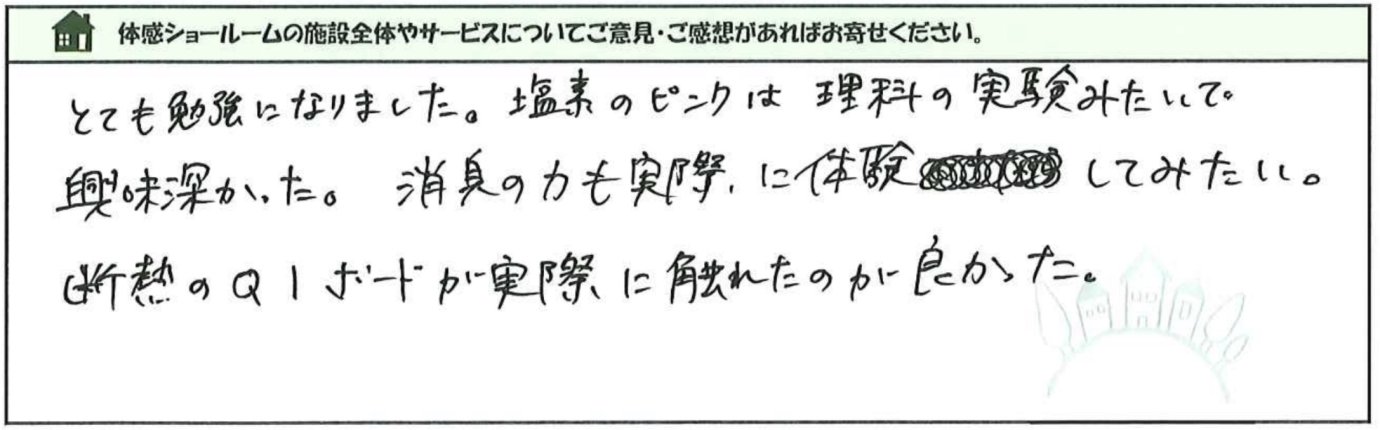 体感ショールームの施設全体やサービスについてご意見・ご感想があればお寄せください。
とても勉強になりました。塩素のピンクは理科の実験みたいで
興味深かった。消臭の力も実際に体験してみたい。
断熱のQ1ボードが実際に触れたのが良かった。